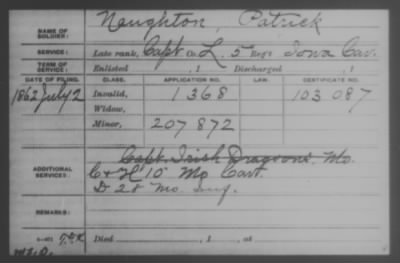 NAME OF SOLDIER: Naughton, Patrick
SERVICE: Late rank, Capt Co. L, 5 Reg't Iowa Cav.
TERM OF SERVICE: Enlisted , 1 Discharged , 1
DATE OF FILING. CLASS. APPLICATION NO. LAW. CERTIFICATE NO.
1862 July 2 Invalid, 1368 103 087
Widow,
Minor, 207 872
ADDITIONAL SERVICES: Capt. Irish Dragoons, Mo.
C & H 10 Mo Cav.
D 28 Mo. Inf.
REMARKS:
Died , 1 , at